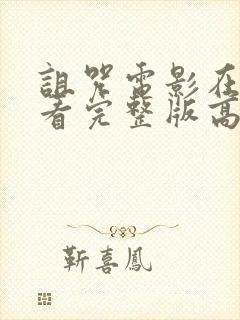 詛咒電影在
看完整版高
靳喜鳳